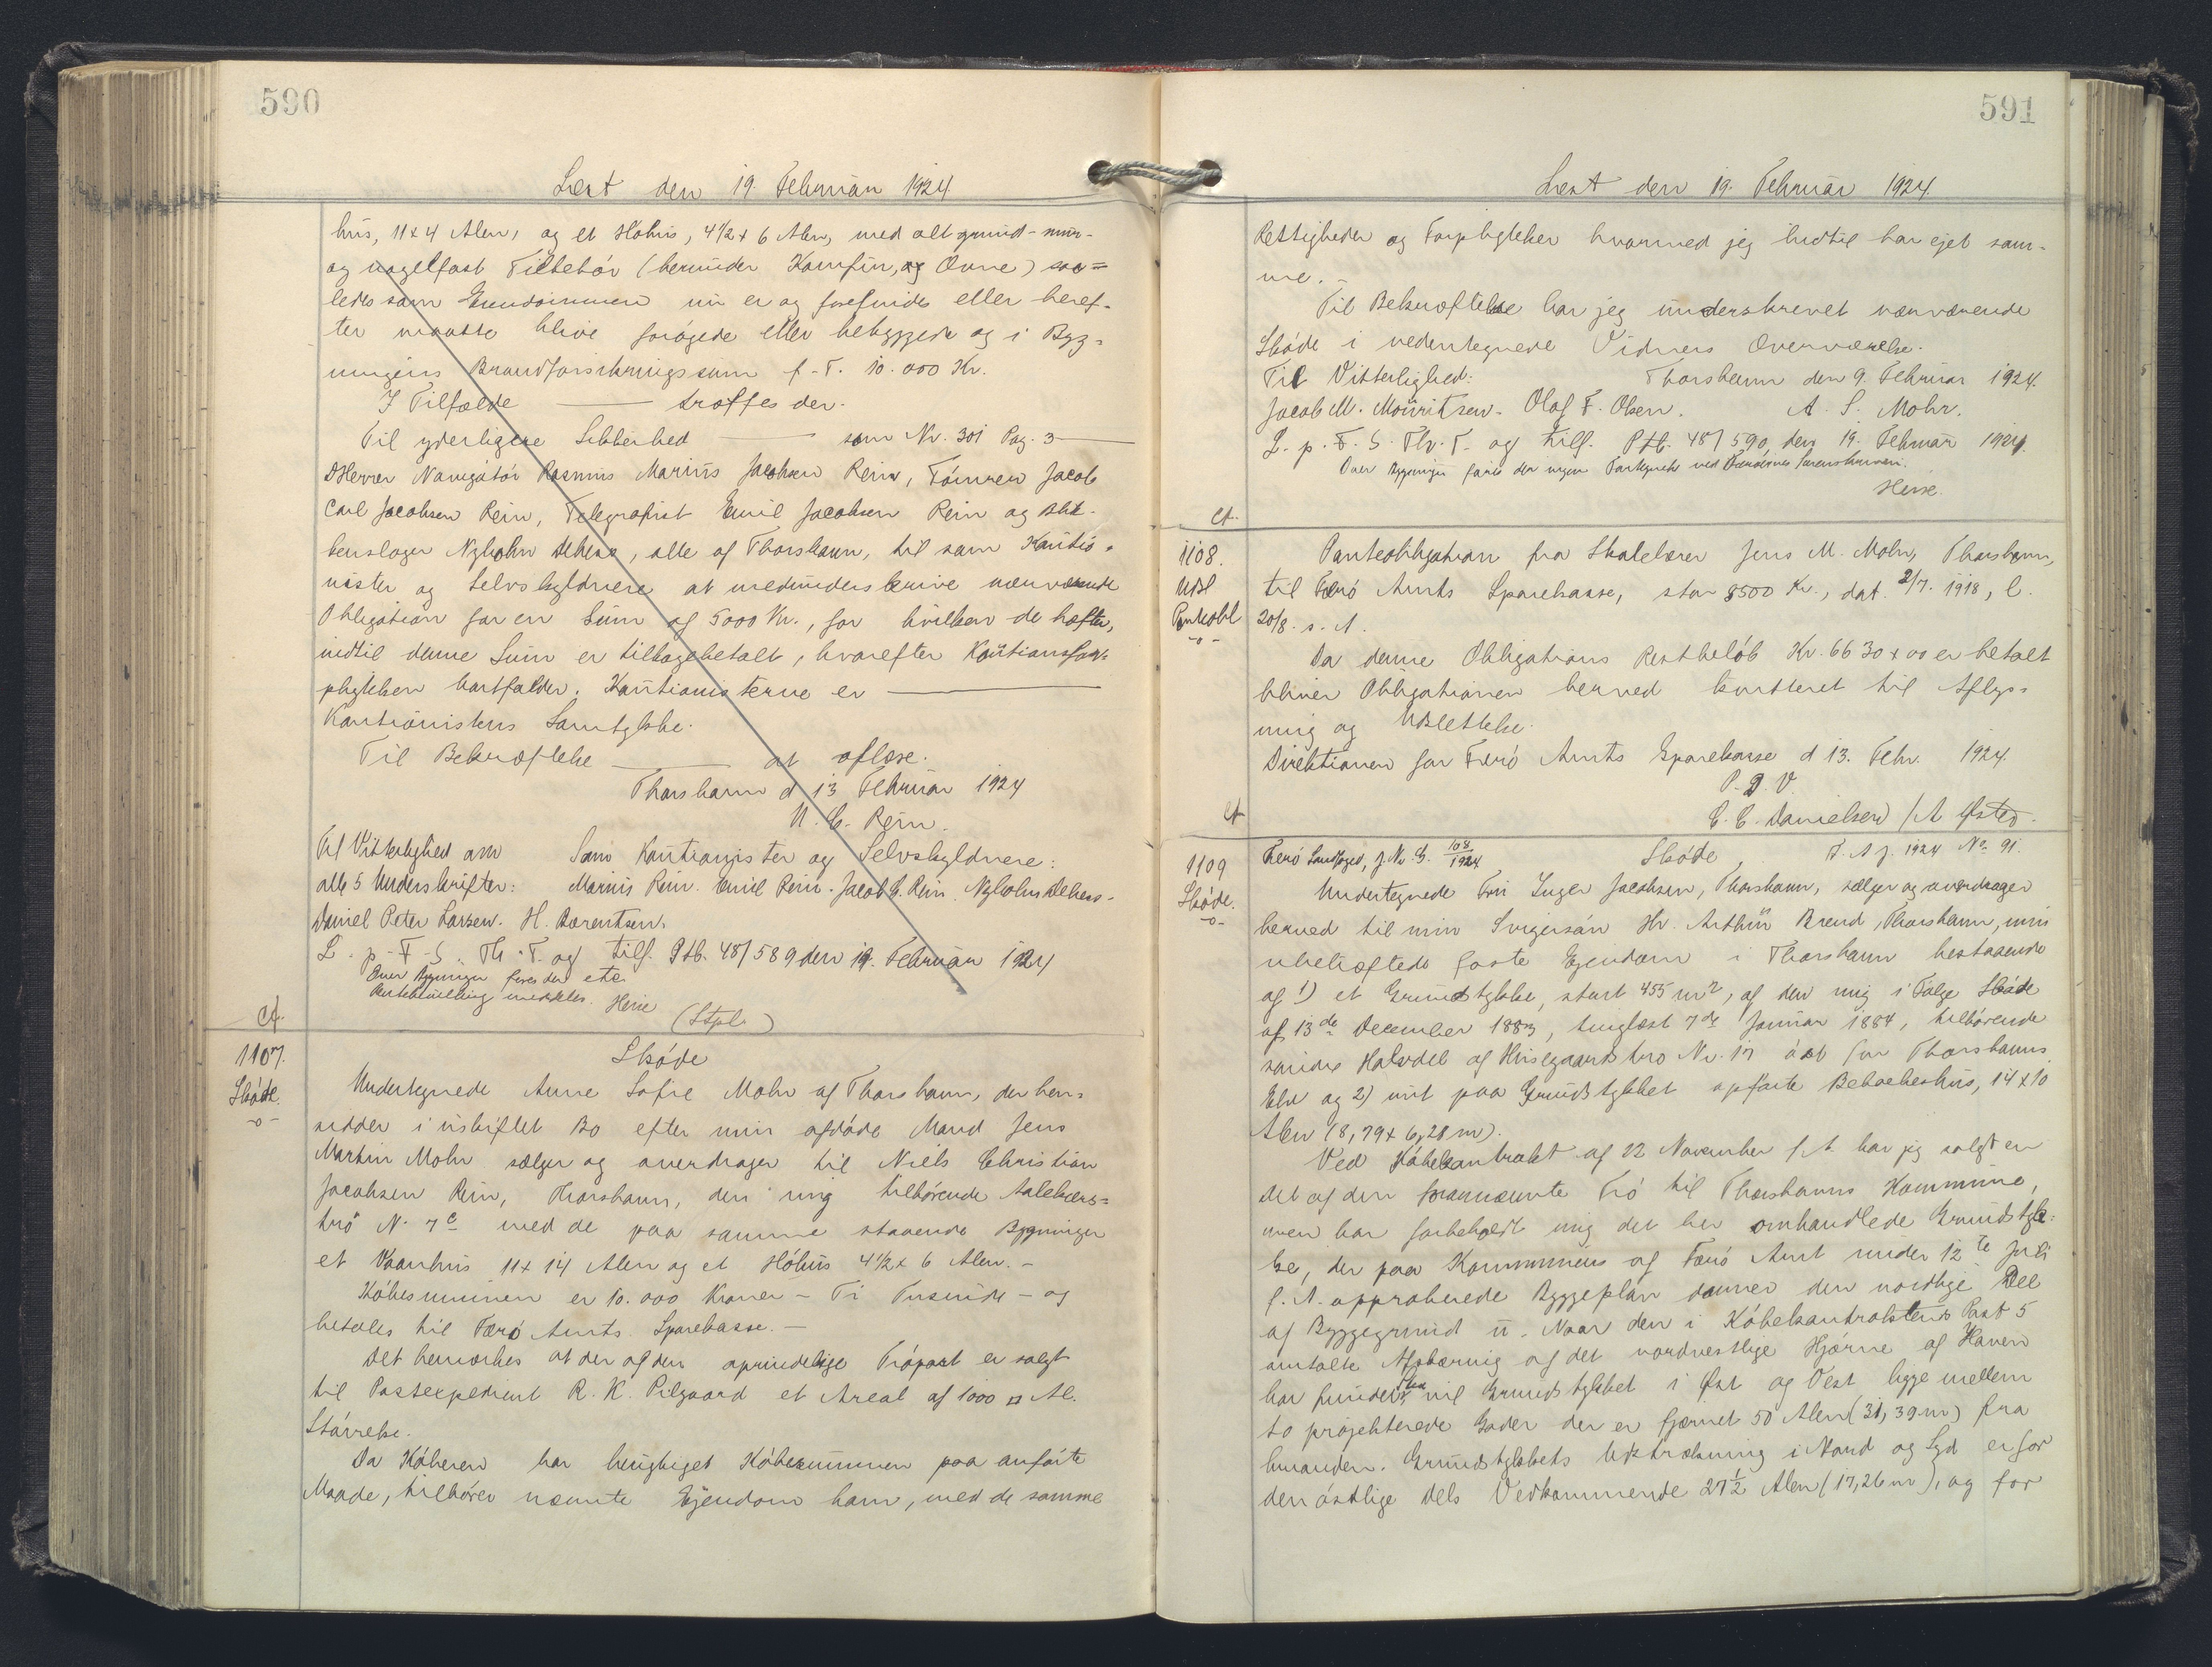 590
Læst den 19. Februar 1924
hus, 11 x 4 Alen, og et Hóhus, 4 1/2 x 6 Alen, med alt grund- mur-
og nagelfast Tilbehór (herunder Komfur, og Ovne) saa=
ledes som Ejendommen nu er og forefindes eller heref-
ter maatte blive forógede eller bebyggede og i Byg-
ningens Brandforsikringssum f. T. 10.000 Kr.
I Tilfælde ——— træffes der.
Til yderligere Sikkerhed ——— som Nr. 301 Pag. 3 ———
DHerrer Navigatór Rasmus Marius Jacobsen Rein, Tómrer Jacob
Carl Jacobsen Rein, Telegrafist Emil Jacobsen Rein og Blik-
kenslager Nyholm Debess, alle af Thorshavn, til som Kautio-
nister og Selvskyldnere at medunderskrive nærværende
Obligation for en Sum af 5000 Kr., for hvilken de hæfter,
indtil denne Sum er tilbagebetalt, hvorefter Kautionsfor-
pligtelsen bortfalder. Kautionisterne er ———
Kautionistens Samtykke.
Til Bekræftelse ——— at aflæse.
Thorshavn d 13 Februar 1924
N. C. Rein.
Til Vitterlighed om Som Kautionister og Selvskyldnere:
alle 5 Underskrifter: Marius Rein. Emil Rein. Jacob C. Rein. Nyholm Debess.
Daniel Peter Larsen. H. Berentsen.
L. p. F. S. Th. T. og tilf. Ptb. 48/589 den 19. Februar 1924
Over Bygningen fores der etc.
Anteckning meddeles. Heise (Stpl.)
Ct.
1107.
Skóde.
-o-
Skóde
Undertegnede Anne Sofie Mohr af Thorshavn, der hen-
sidder i uskiftet Bo efter min afdóde Mand Jens
Martin Mohr sælger og overdrager til Niels Christian
Jacobsen Rein, Thorshavn, den mig tilhórende
tró N. 7c med de paa samme staaende Bygninger
et Vaanhus 11 x 14 Alen og et Hóhus 4 1/2 x 6 Alen. -
Kóbesummen er 10.000 Kroner - Ti Tusinde - og
betales til Færó Amts Sparekasse. -
Det bemærkes at der af den oprindelige Trópart er solgt
til Postexpedient R. K. Pilgaard et Areal af 1000 □ Al.
Stórrelse.
Da Kóberen har berigtiget Kóbesummen paa anfórte
Maade, tilhórer nævnte Ejendom ham, med de samme
591
Læst den 19. Februar 1924.
Rettigheder og Forpligtelser hvormed jeg hidtil har ejet sam-
me. -
Til Bekræftelse har jeg underskrevet nærværende
Skóde i vedertegnede Vidners Overværelse.
Til Vitterlighed: Thorshavn den 9. Februar 1924.
Jacob M. Mouritsen. Olaf F. Olsen. A. S. Mohr.
L. p. F. S. Th. T. og tilf. Ptb. 48/590 den 19. Februar 1924.
Over Bygningen fores der ingen Partegnelse ved Færóernes Sorenskriveri.
Heise.
Ct.
1108.
Udsl
Panteobl
-o-
Panteobligation fra Skolelærer Jens M. Mohr, Thorshavn,
til Færó Amts Sparekasse, stor 8500 Kr., dat. 2/7. 1918, l.
20/8. s. A.
Da denne Obligations Restbelób Kr. 6630 x 00 er betalt
bliver Obligationen herved kvitteret til Aflys-
ning og Udslettelse.
Direktionen for Færó Amts Sparekasse d 13. Febr. 1924.
P. D. V.
C. C. Danielsen / A Østed.
Ct
1109
Skóde.
-o-
Færó Landfoged, J. Nr. G. 108/1924 Skóde, F. A J. 1924 No. 91.
Undertegnede Fru Inger Jacobsen, Thorshavn, sælger og overdrager
herved til min Svigersón Hr. Arthur Brend, Thorshavn, min
ubehæftede faste Ejendom i Thorshavn bestaaende
af 1) et Grundstykke, stort 455 m2, af den mig i Fólge Skóde
af 13de December 1883, tinglæst 7de Januar 1884, tilhórende
søndre Halvdel af Husegaards tro Nr. 17 óst for Thorshavns
Elv og 2) mit paa Grundstykket opførte Beboelseshus, 14 x 10
Alen (8,79 x 6,28 m).
Ved Kóbekontrakt af 22 November f. A. har jeg solgt en
del af den foran nævnte Tró til Thorshavns Kommune,
men har forbeholdt mig det her omhandlede Grundstyk-
ke, der paa Kommunens af Færó Amt under 12te Juli
f. A. approberede Byggeplan danner den nordlige Del
af Byggegrund u. Naar den i Kóbekontraktens Post 5
omtalte Afskæring af det nordvestlige Hjórne af Haven
har fundet Sted vil Grundstykket i Øst og Vest ligge mellem
to projekterede Gader der er fjernet 50 Alen (31,39 m) fra
hinanden. Grundstykkets Udstrækning i Nord og Syd er for
den óstlige Dels Vedkommende 27 1/2 Alen (17,26 m), og for